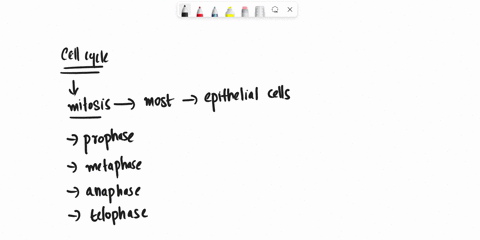 Cell cycle
↓
mitosis → most → epithelial cells
→ prophase
→ metaphase
→ anaphase
→ telophase